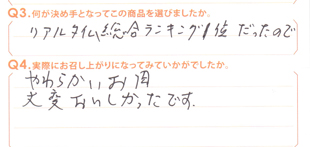 Q3.何が決め手となってこの商品を選びましたか。
リアルタイム総合ランキング1位だったので
Q4.実際にお召し上がりになってみていかがでしたか。
やわらかいお肉
大変おいしかったです.